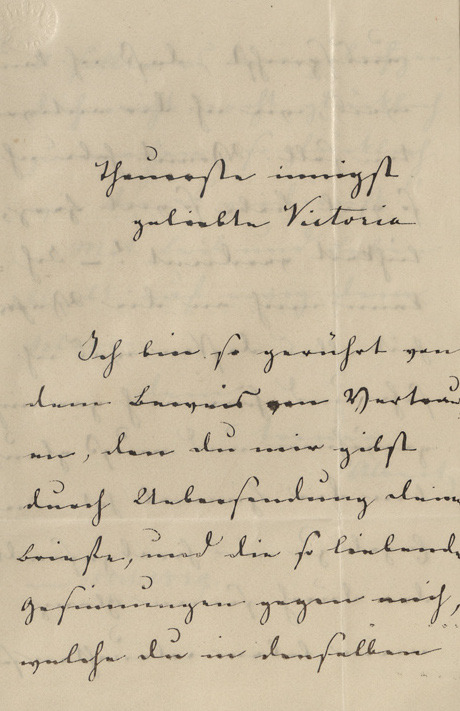 Theuerste innigst
geliebte Victoria
Ich bin so gerührt von
dem Beweis von Vertrau
en, den du mir gibst
durch Uebersendung deine
Briefe, und die so liebende
Gesinnungen gegen mich,
welche du in denselben